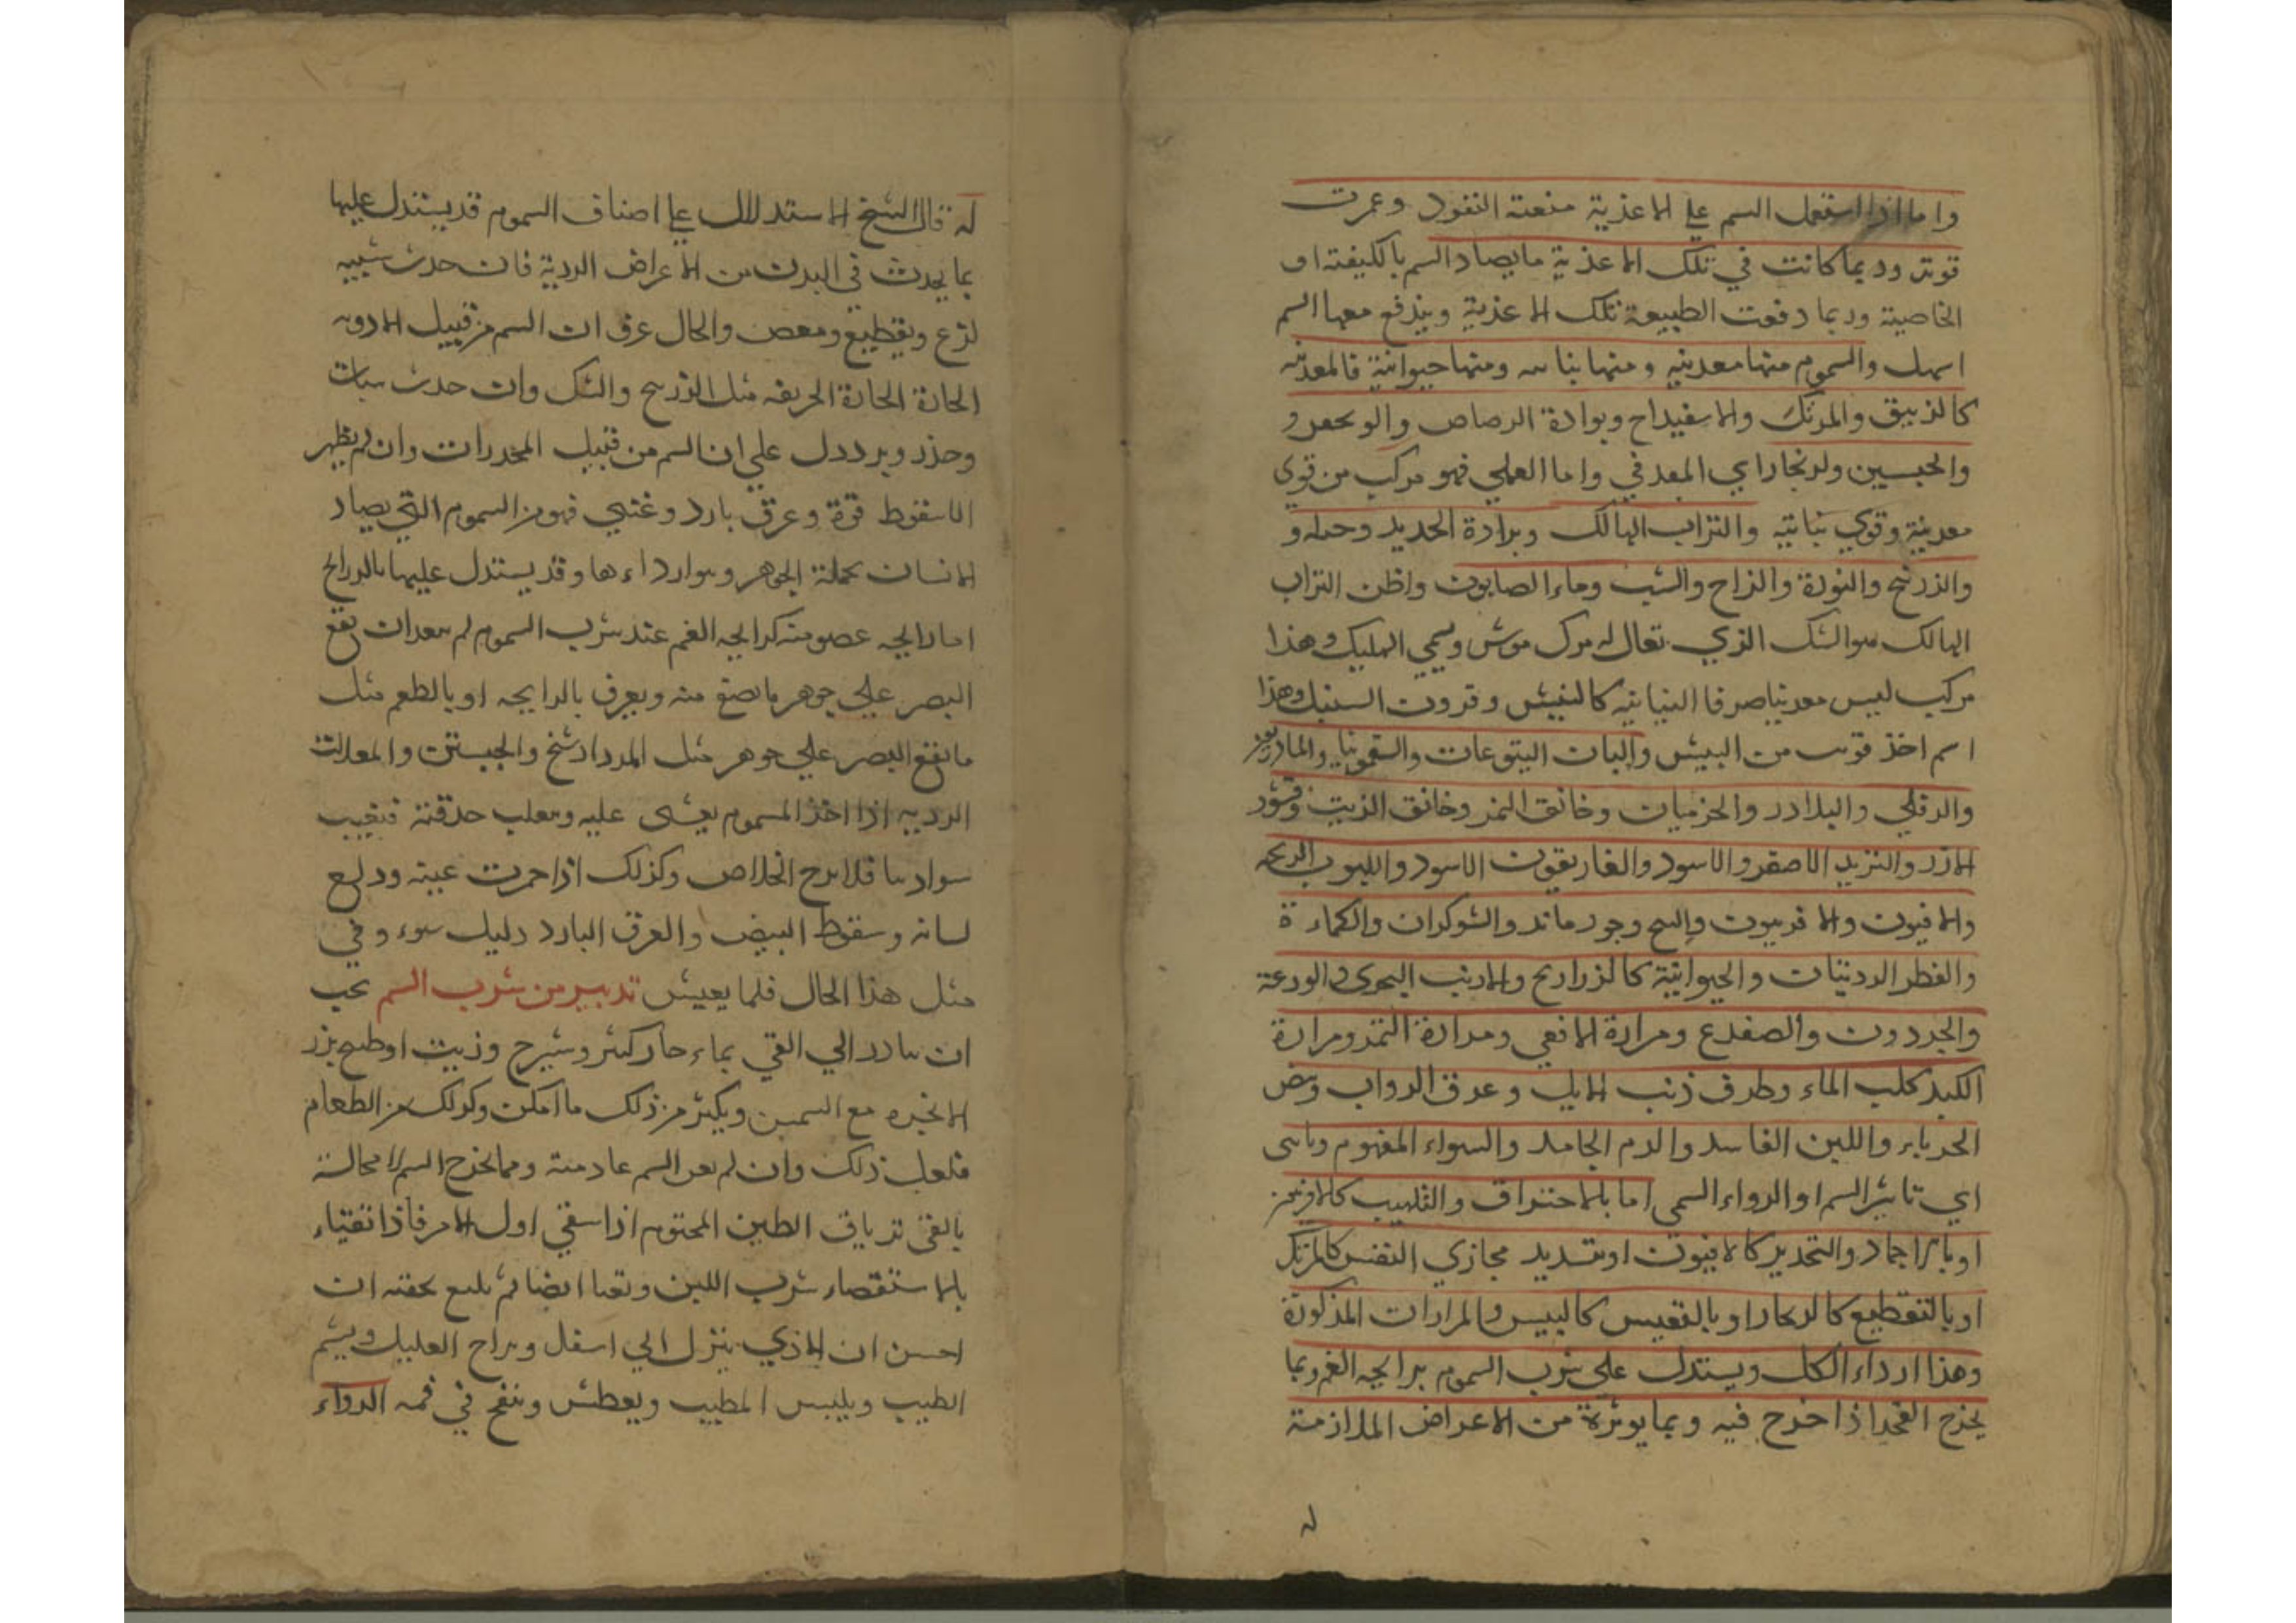 واما اذا استعمل السم علي الاعذية منعته النفود وعمرت
قوته وربما كانت في تلك الاعذية ما يصاد السم بالكيفته او
الخاصية وربما دفعت الطبيعة تلك الاعذية ويندفع معها السم
اسهل والسموم منها معدنيه ومنها نباتيه ومنها حيوانية فالمعدنيه
كالزيبق والمرتك والاسفيداج وبرادة الرصاص
والجبسين والزنجار اي المعدني واما العملي فهو مركب من قوي
معدنية وقوي نباتيه والتراب الهالك وبرادة الحديد
والزرنيخ والنورة والزاج والشب وماء الصابون واظن التراب
الهالك هو الشك الذي تعال له مرك موش ويسمي الهليك وهذا
مركب ليس معدنيا صرفا النباتيه كالبيش وقرون السنبل وهذا
اسم اخذ قوته من البيش والبان اليتوعات والسقمونيا والمازريون
والدفلي والبلادر والحزميات وخانق النمر وخانق الذيت وقشور
الارز والتربد الاصفر والاسود والغاريقون الاسود
والافيون والافربيون والبنج وجوز ماثد والشوكران والكماءة
والفطر الرديات والحيوانية كالذراريح والارنب البحري والوزغة
والجردون والضفدع ومرارة الافعي ومرارة النمر ومرارة
الكبد كلب الماء وطرف ذنب الايل وعرق الدواب وبيض
الحرباء واللبن الفاسد والدم الجامد والسواء المغموم
اي تاثير السم او الدواء السمي اما بالاحتراق والتلهيب كالافربيون
او بالاجماد والتخدير كالافيون او بتسديد مجازي النفس كالمرتك
او بالتقطيع كالزنجار او بالتعيس كالبيس والمرارات المذكورة
وهذا ارداء الكل ويستدل علي شرب السموم برايحه الفم وبما
يخرج القي اذا خرج فيه وبما يوثرة من الاعراض الملازمة
له
له قال الشيخ الاستدلال علي اصناف السموم قد يستدل عليها
بما يحدث في البدن من الاعراض الردية فان حدث شبيه
لذع وتقطيع ومغص والحال عرف ان السم من قبيل الادويه
الحادة الحادة الحريفه مثل الزرنيخ والشك وان حدث سبات
وخدر وبرد دل علي ان السم من قبيل المخدرات وان لم يظهر
الاسقوط قوة وعرق بارد وغشي فهو من السموم التي يصاد
الانسان بجملة الجوهر وهو ارداءها وقد يستدل عليها بالروايح
اما رايحه عضو منه كرايحه الفم عند شرب السموم لم بعد ان يقع
البصر علي جوهر ما يصنع منه ويعرف بالرايحه او بالطعم مثل
ما يقع البصر علي جوهر مثل المرداد شنخ والجبستن
الرديه اذا اخذ المسموم يغشي عليه وتعلب حدقته فتغيب
سوادها فلا يرج الخلاص وكذلك اذا حمرت عينه ودلع
لسانه وسقوط النبض والعرق البارد دليل سوء وفي
مثل هذا الحال فلما يعيش تدبير من شرب السم يجب
ان يبادر الي القي بماء حار كثير وشيرج وزيت او طبيخ بزر
الانجره مع السمن ويكثر من ذلك ما امكن وكذلك من الطعام
فلعل ذلك وان لم يعن السم عاد منه ومما يخرج السم لا محالة
بالقي ترياق الطين المختوم اذا سقي اول الامر فاذا تقياء
بالاستقصاء شرب اللبن وتقيا ايضا ثم يتبع بحقنه ان
احسن ان الاذي ينزل الي اسفل ويراح العليل ويشم
الطيب ويلبس المطيب ويعطش وينفخ في فمه الدواء